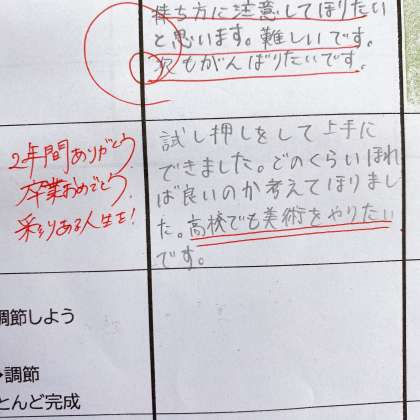 持ち方に注意してほりたい
と思います。難しいです。
次もがんばりたいです。
2年間ありがとう
卒業おめでとう
彩りある人生を!
試し押しをして上手に
できました。どのくらいほれ
ば良いのか考えてほりまし
た。高校でも美術をやりたい
です。
調節しよう
調節
とんど完成